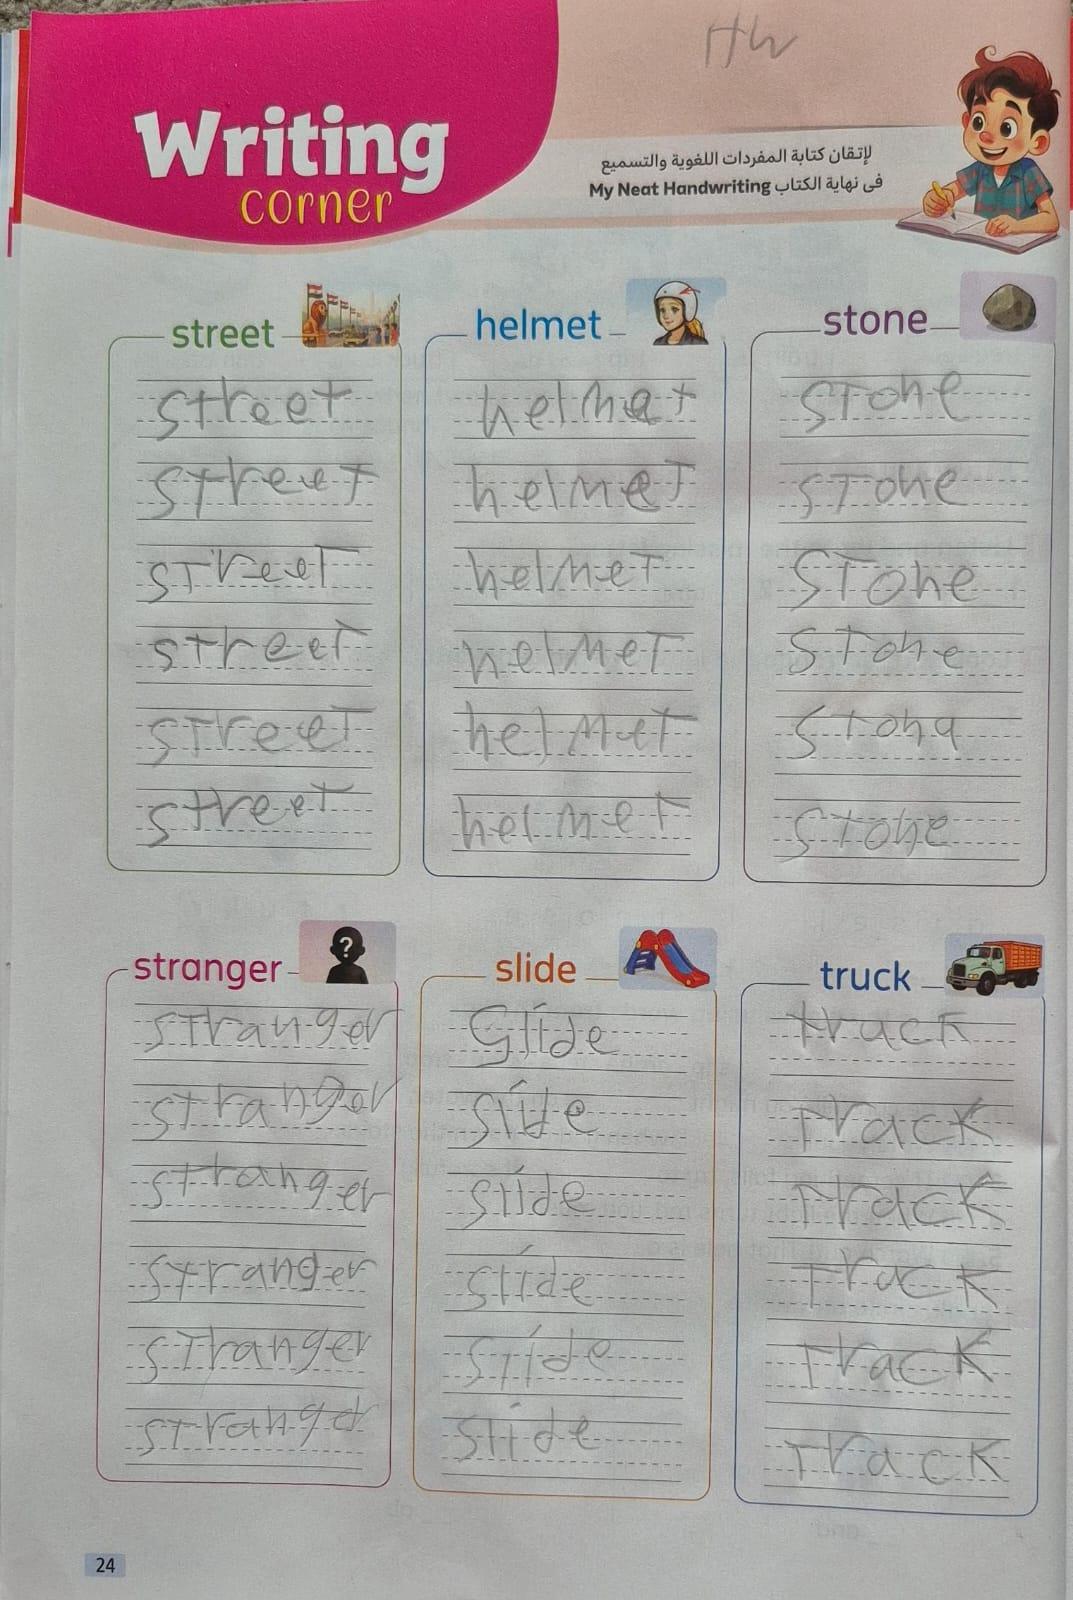 HW
Writing
corner
لإتقان كتابة المفردات اللغوية والتسميع
فى نهاية الكتاب My Neat Handwriting
street
street
street
street
street
street
street
helmet
helmat
helmet
helmet
helmet
helmet
helmet
stone
stone
stone
stone
stone
stona
stone
stranger
stranger
stranger
stranger
stranger
stranger
stranger
?
slide
Slide
slide
slide
slide
slide
slide
truck
track
track
track
track
track
track
24